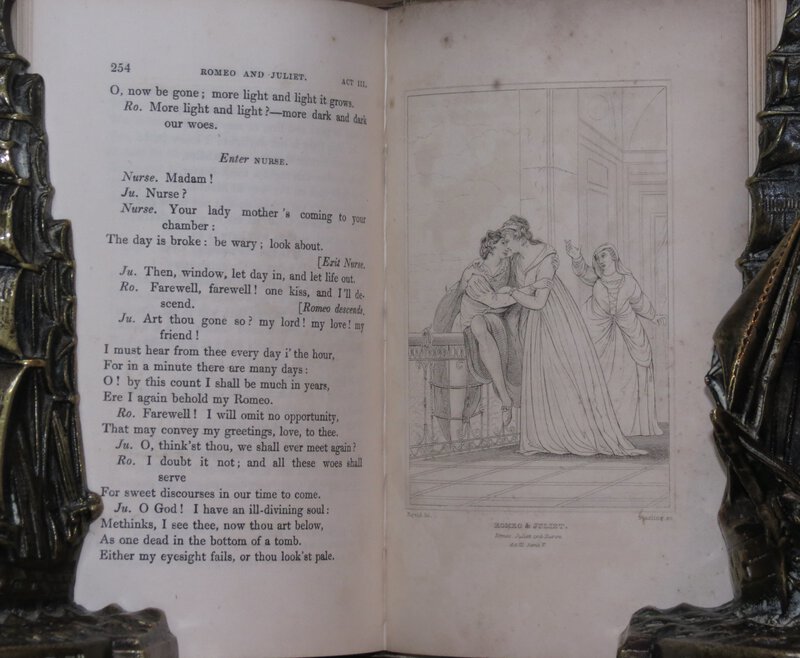 254
ROMEO AND JULIET.
ACT III.
O, now be gone; more light and light it grows.
Ro. More light and light?—more dark and dark
our woes.
Enter NURSE.
Nurse. Madam!
Ju. Nurse?
Nurse. Your lady mother's coming to your
chamber:
The day is broke: be wary; look about.
[Exit Nurse.
Ju. Then, window, let day in, and let life out.
Ro. Farewell, farewell! one kiss, and I'll de-
scend.
[Romeo descends.
Ju. Art thou gone so? my lord! my love! my
friend!
I must hear from thee every day i' the hour,
For in a minute there are many days:
O! by this count I shall be much in years,
Ere I again behold my Romeo.
Ro. Farewell! I will omit no opportunity,
That may convey my greetings, love, to thee.
Ju. O, think'st thou, we shall ever meet again?
Ro. I doubt it not; and all these woes shall
serve
For sweet discourses in our time to come.
Ju. O God! I have an ill-divining soul:
Methinks, I see thee, now thou art below,
As one dead in the bottom of a tomb.
Either my eyesight fails, or thou look'st pale.
ROMEO & JULIET.
Romeo Juliet and Nurse